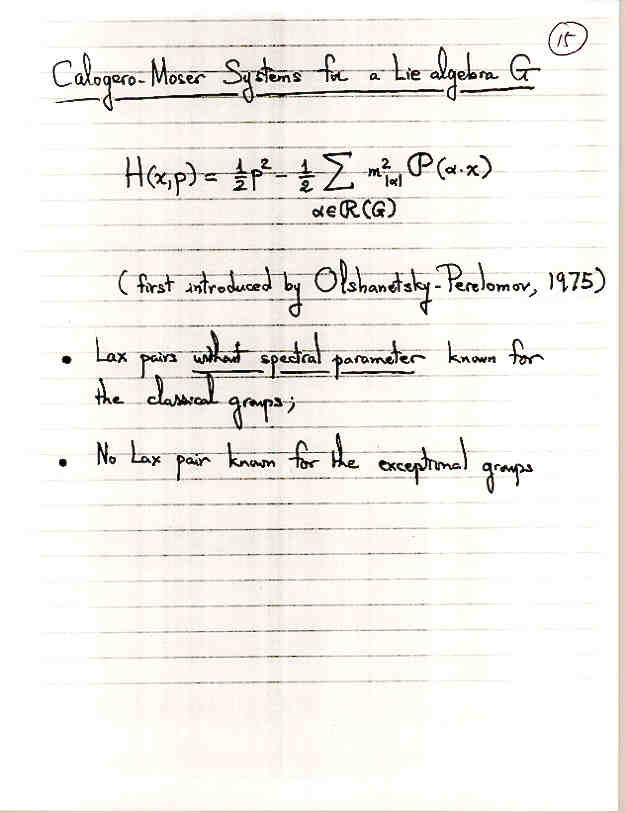 15
Calogero-Moser Systems for a Lie algebra G
H(x,p) = 1/2 p² - 1/2 Σ m²_|α| ℘(α·x)
α∈R(G)
(first introduced by Olshanetsky-Perelomov, 1975)
• Lax pairs without spectral parameter known for
the classical groups;
• No Lax pair known for the exceptional groups